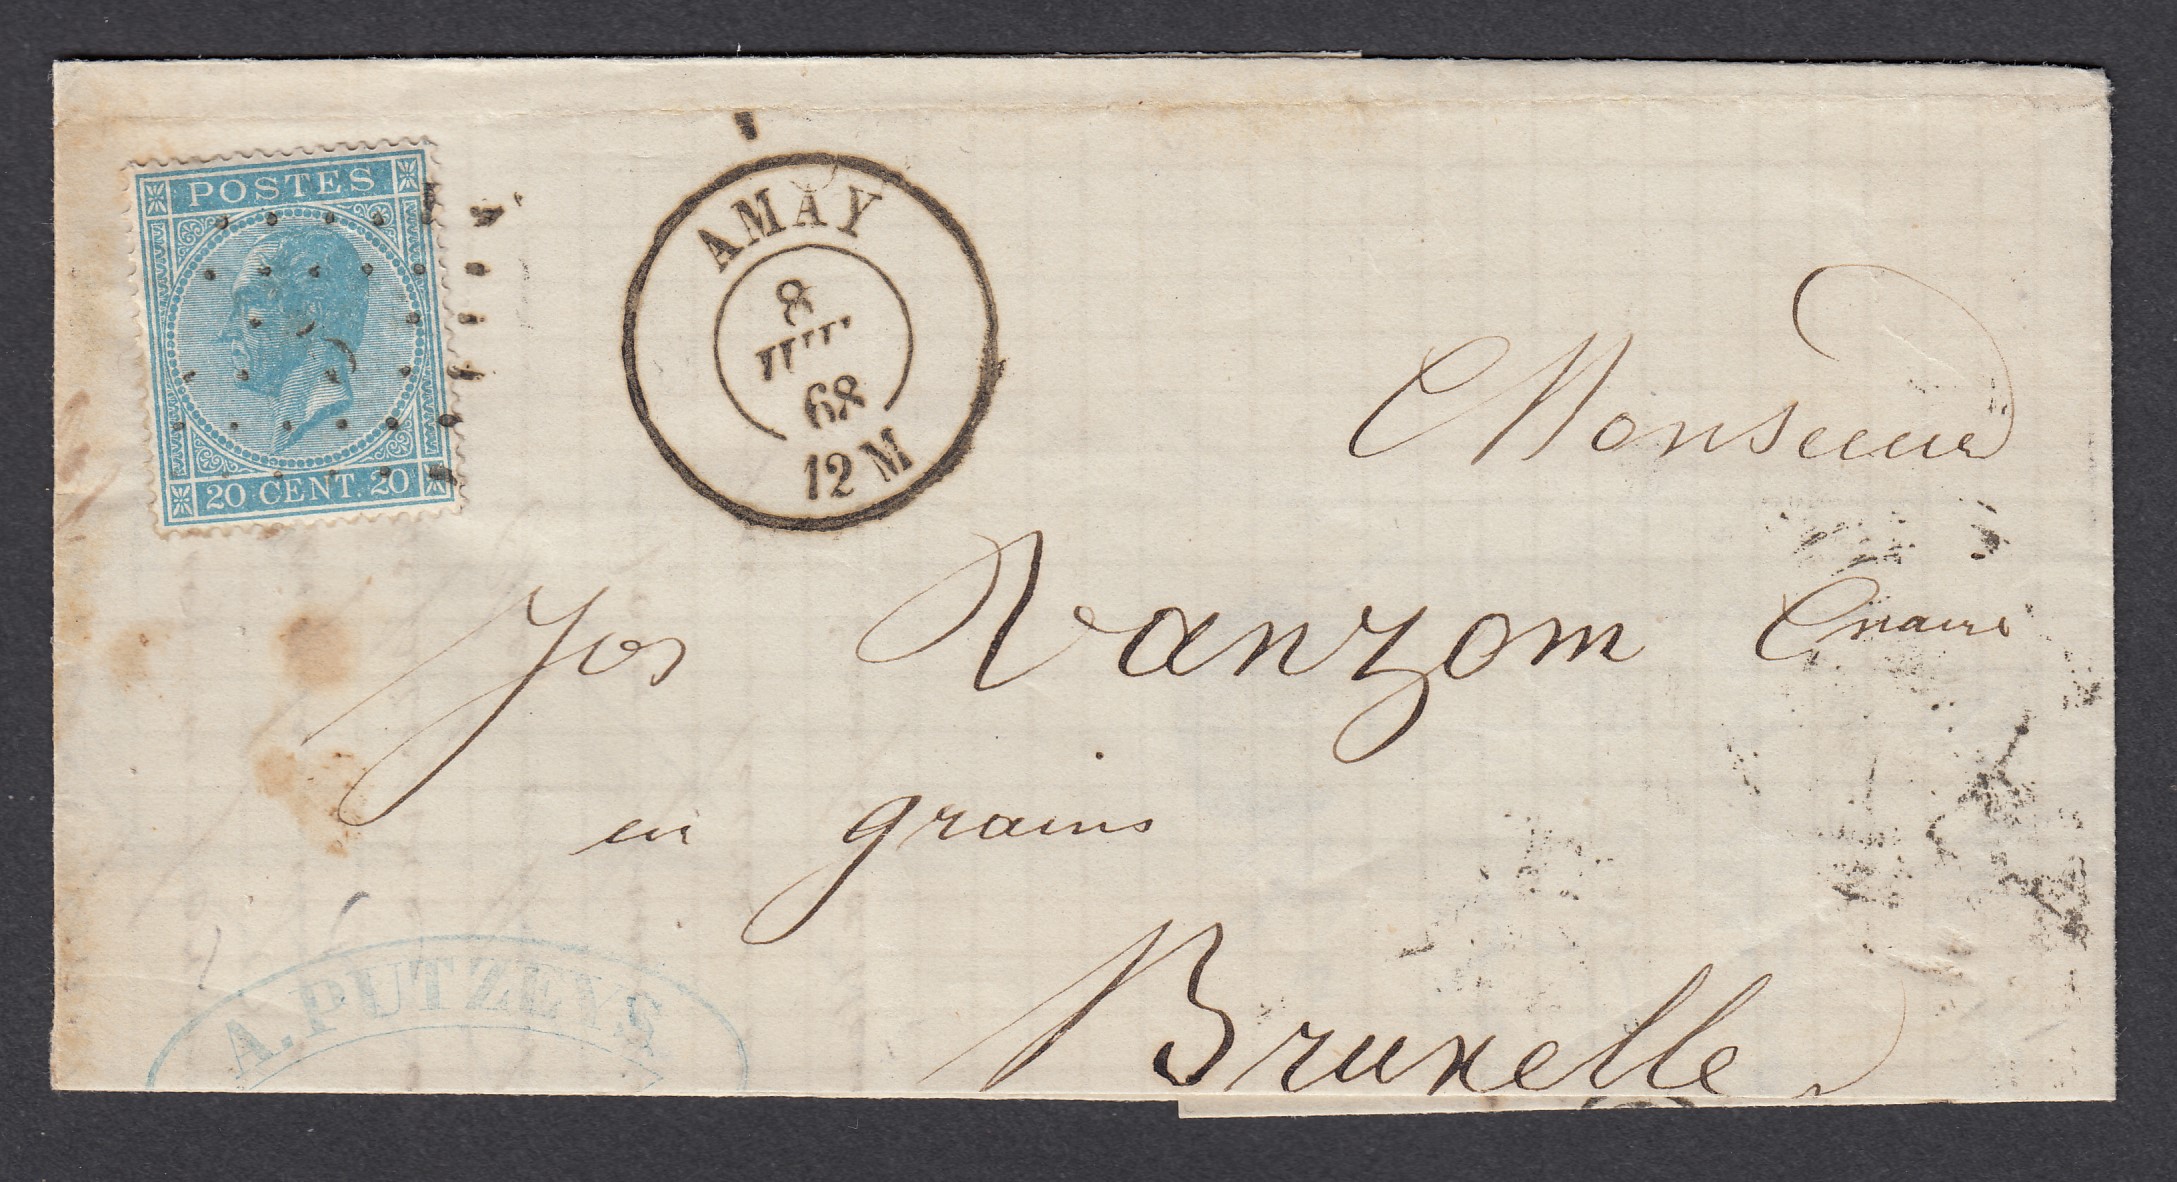 POSTES
20 CENT. 20
AMAY
8
68
12 M
Monsieur
Jos Vanzom
en grains
Bruxelles
A. PUTZEYS